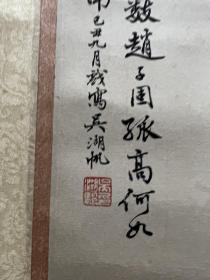 趙子固孤高何如
己丑九月戲寫吳湖帆